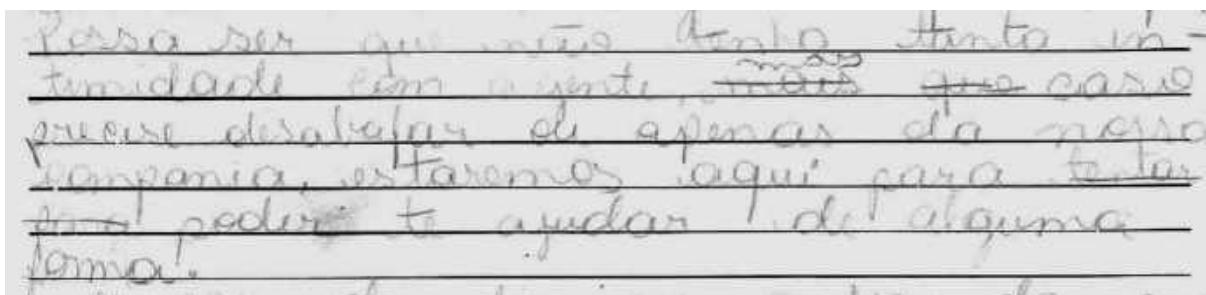 Possa ser que não tenha tanta in-
timidade com agente, mas caso
precise desabafar ou apenas da nossa
compania, estaremos aqui para tentar
poder te ajudar de alguma
forma.